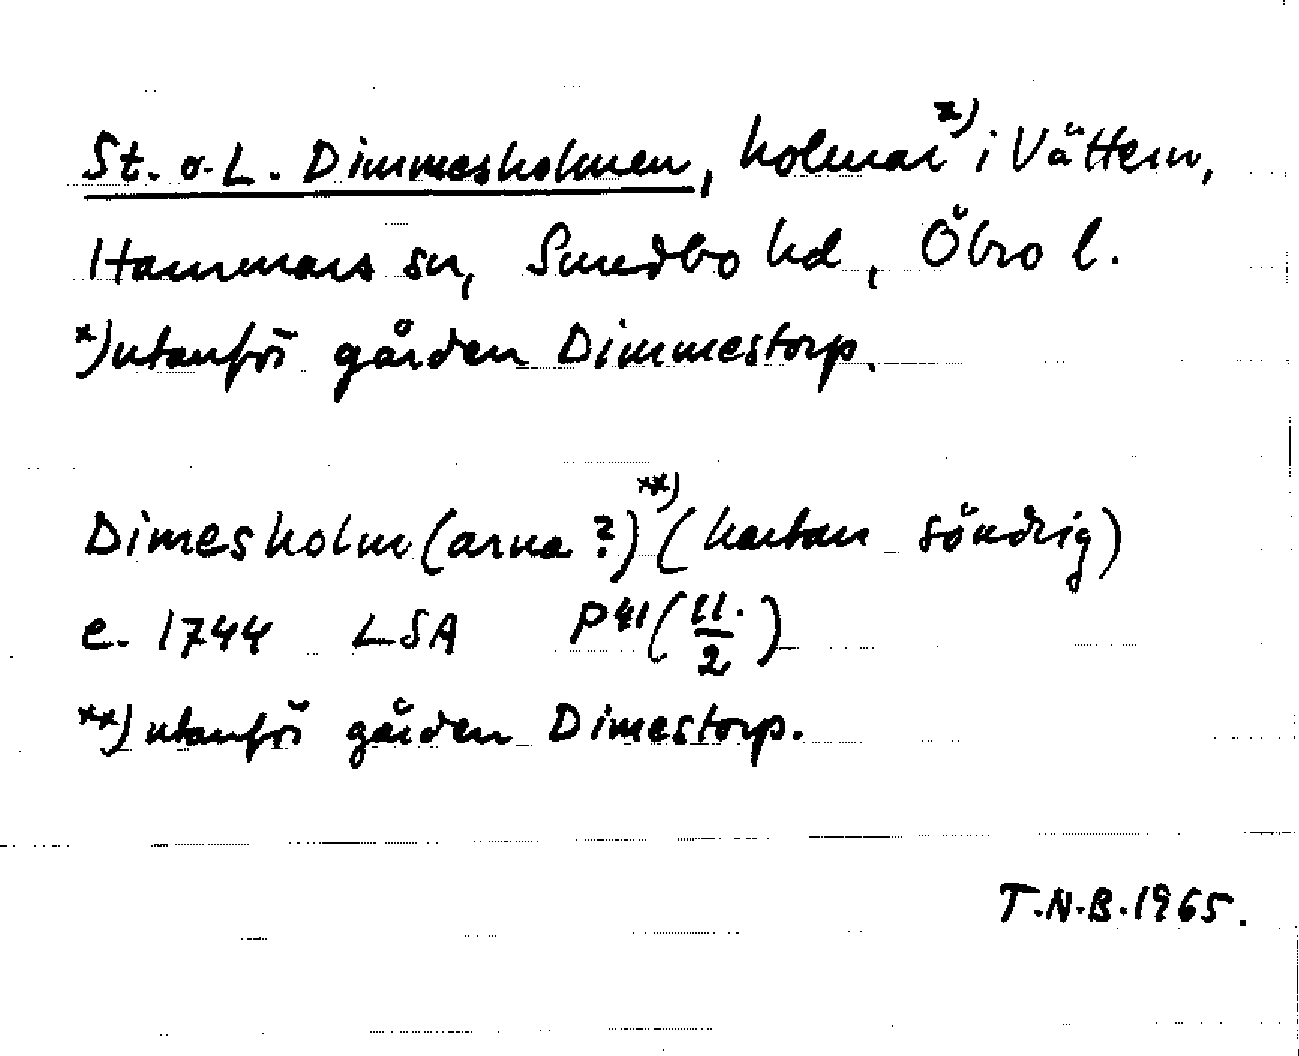 St. o. L. Dimmesholmen, holmar x) i Vättern,
Hammars sn, Sundbo hd, Öbro l.
x) utanför gården Dimmestorp.
Dimesholm(arna?) xx) (kartan söndrig)
c. 1744 LSA P41 (11./2)
xx) utanför gården Dimestorp.
T.N.B. 1965.